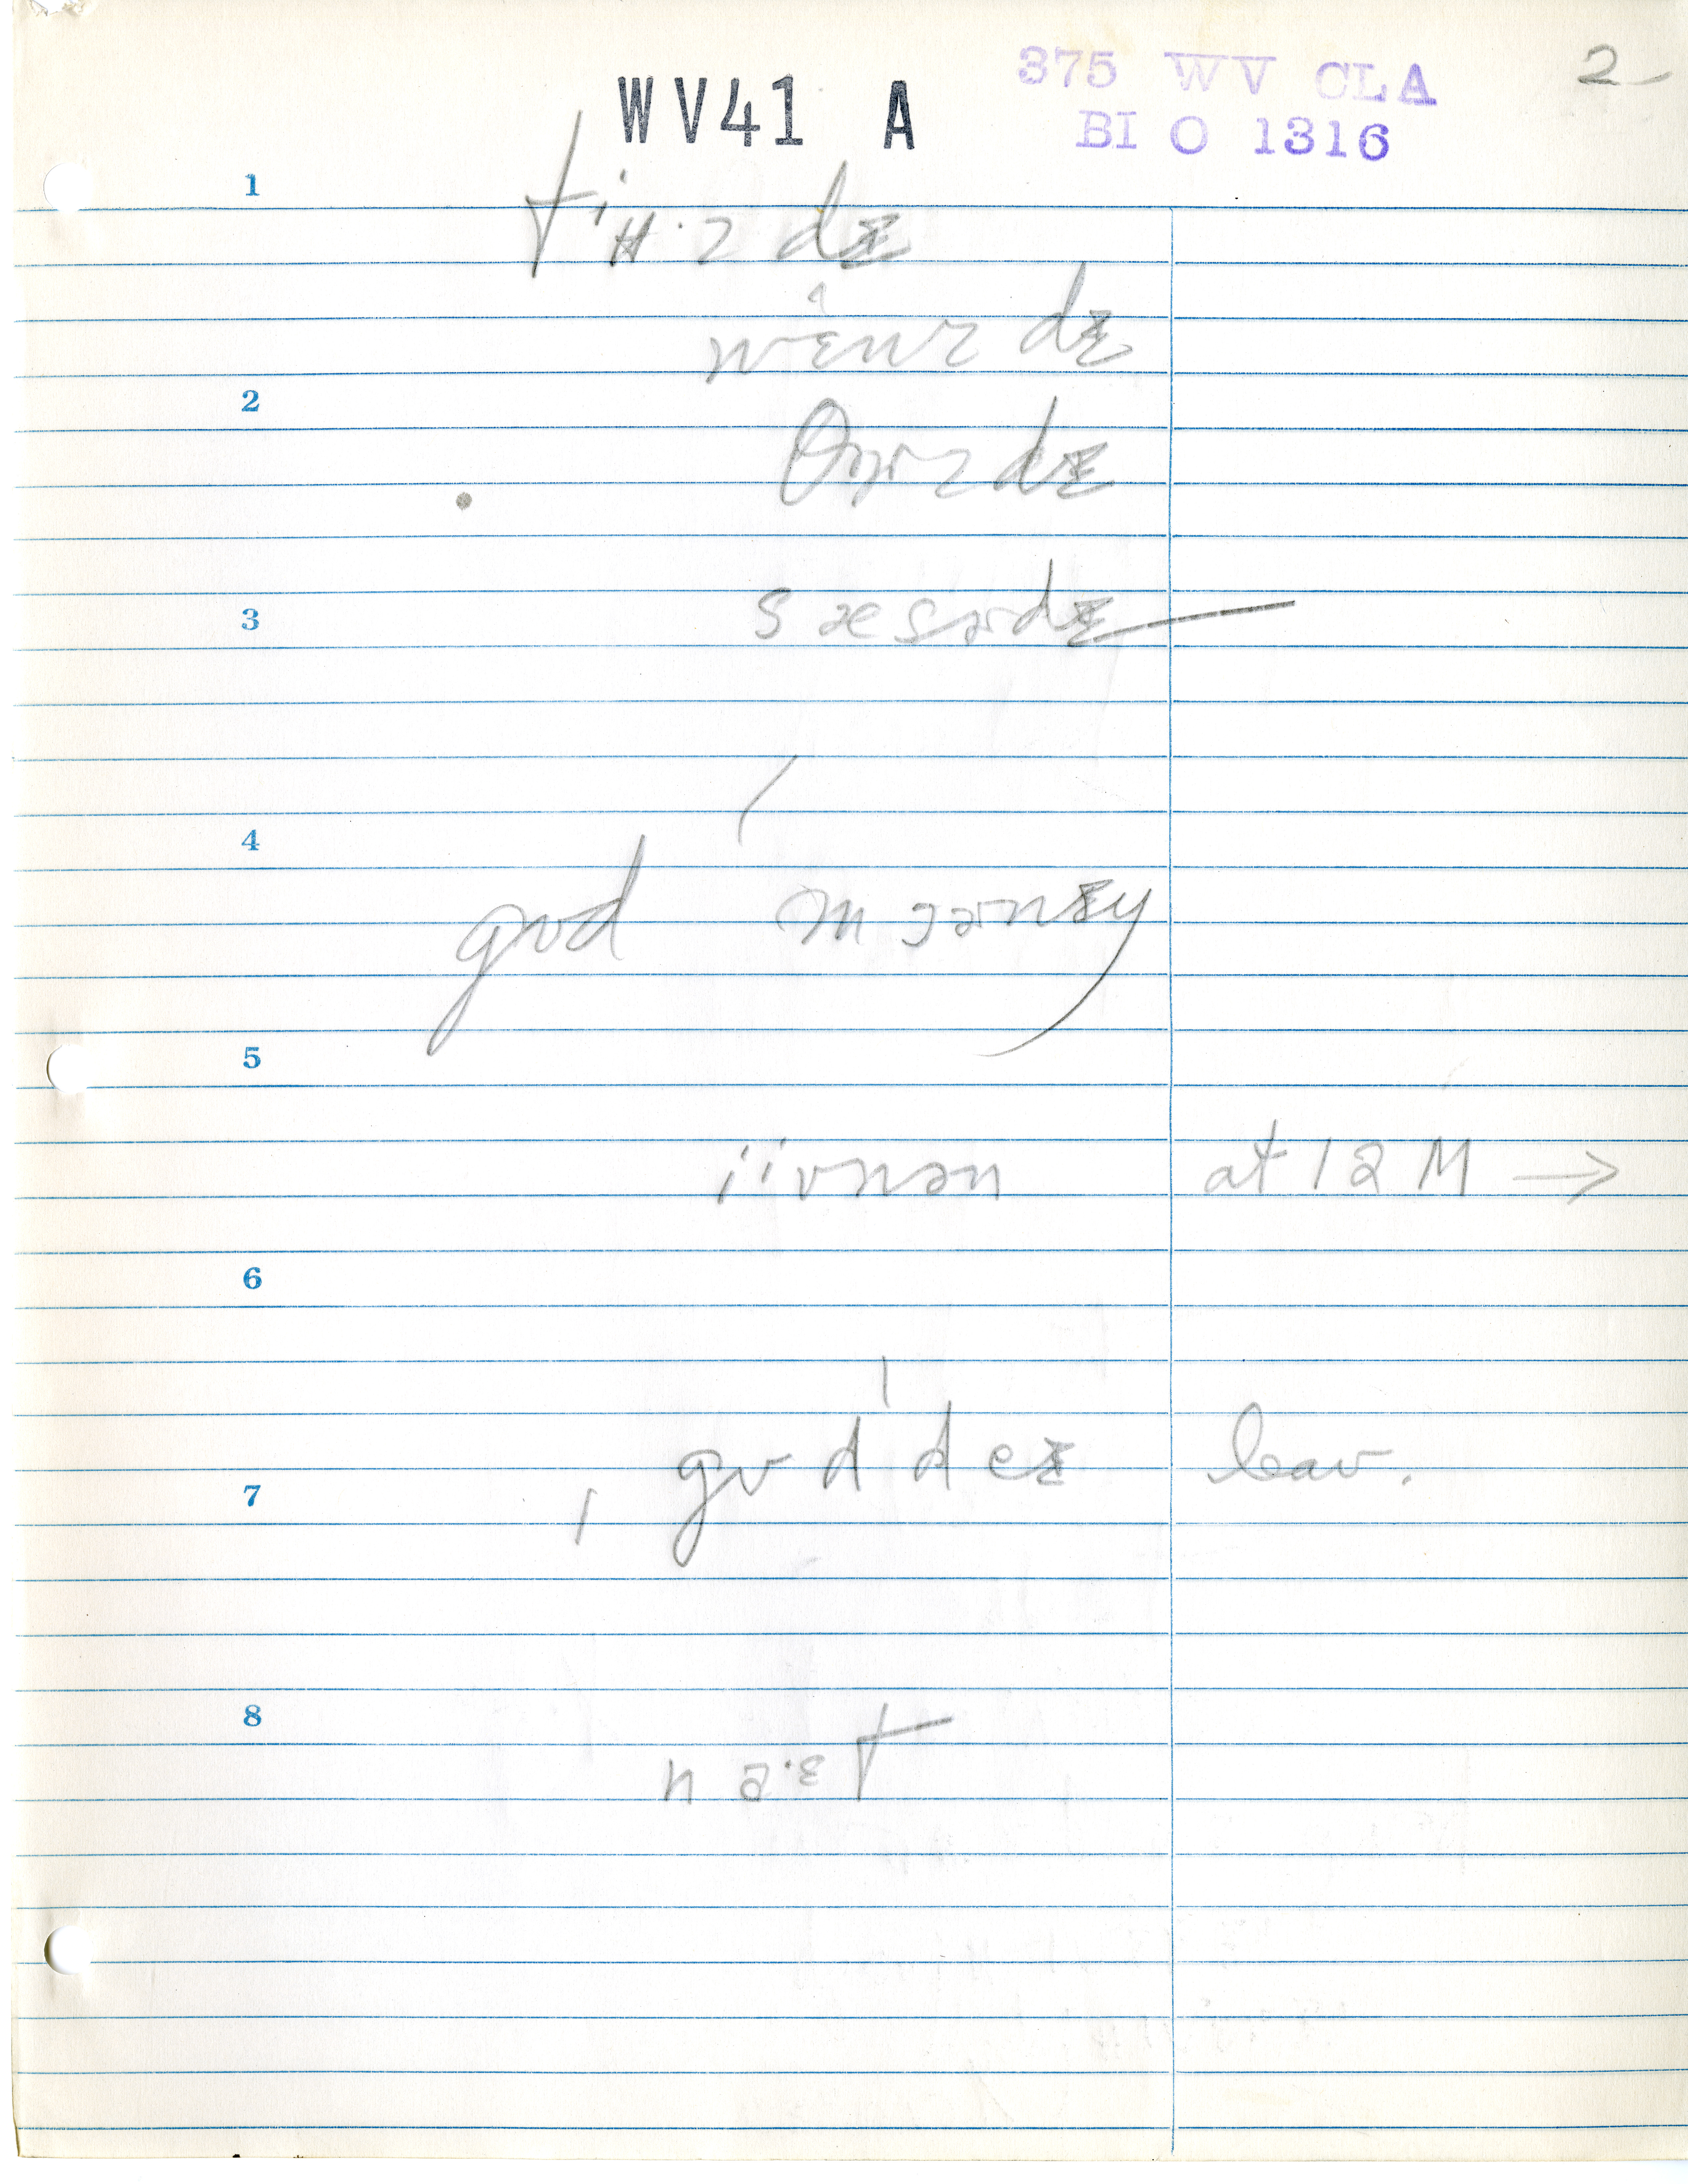 WV41 A
375 WV CLA
BI O 1316
2
1
tiʉ·zdɪ
wɛnzdɪ
2
θɚzdɪ
3
sæsɚdɪ
4
gʊd mɔɚnɪŋ
5
iivnən at 12 M →
6
gʊd deɪ leav.
7
8